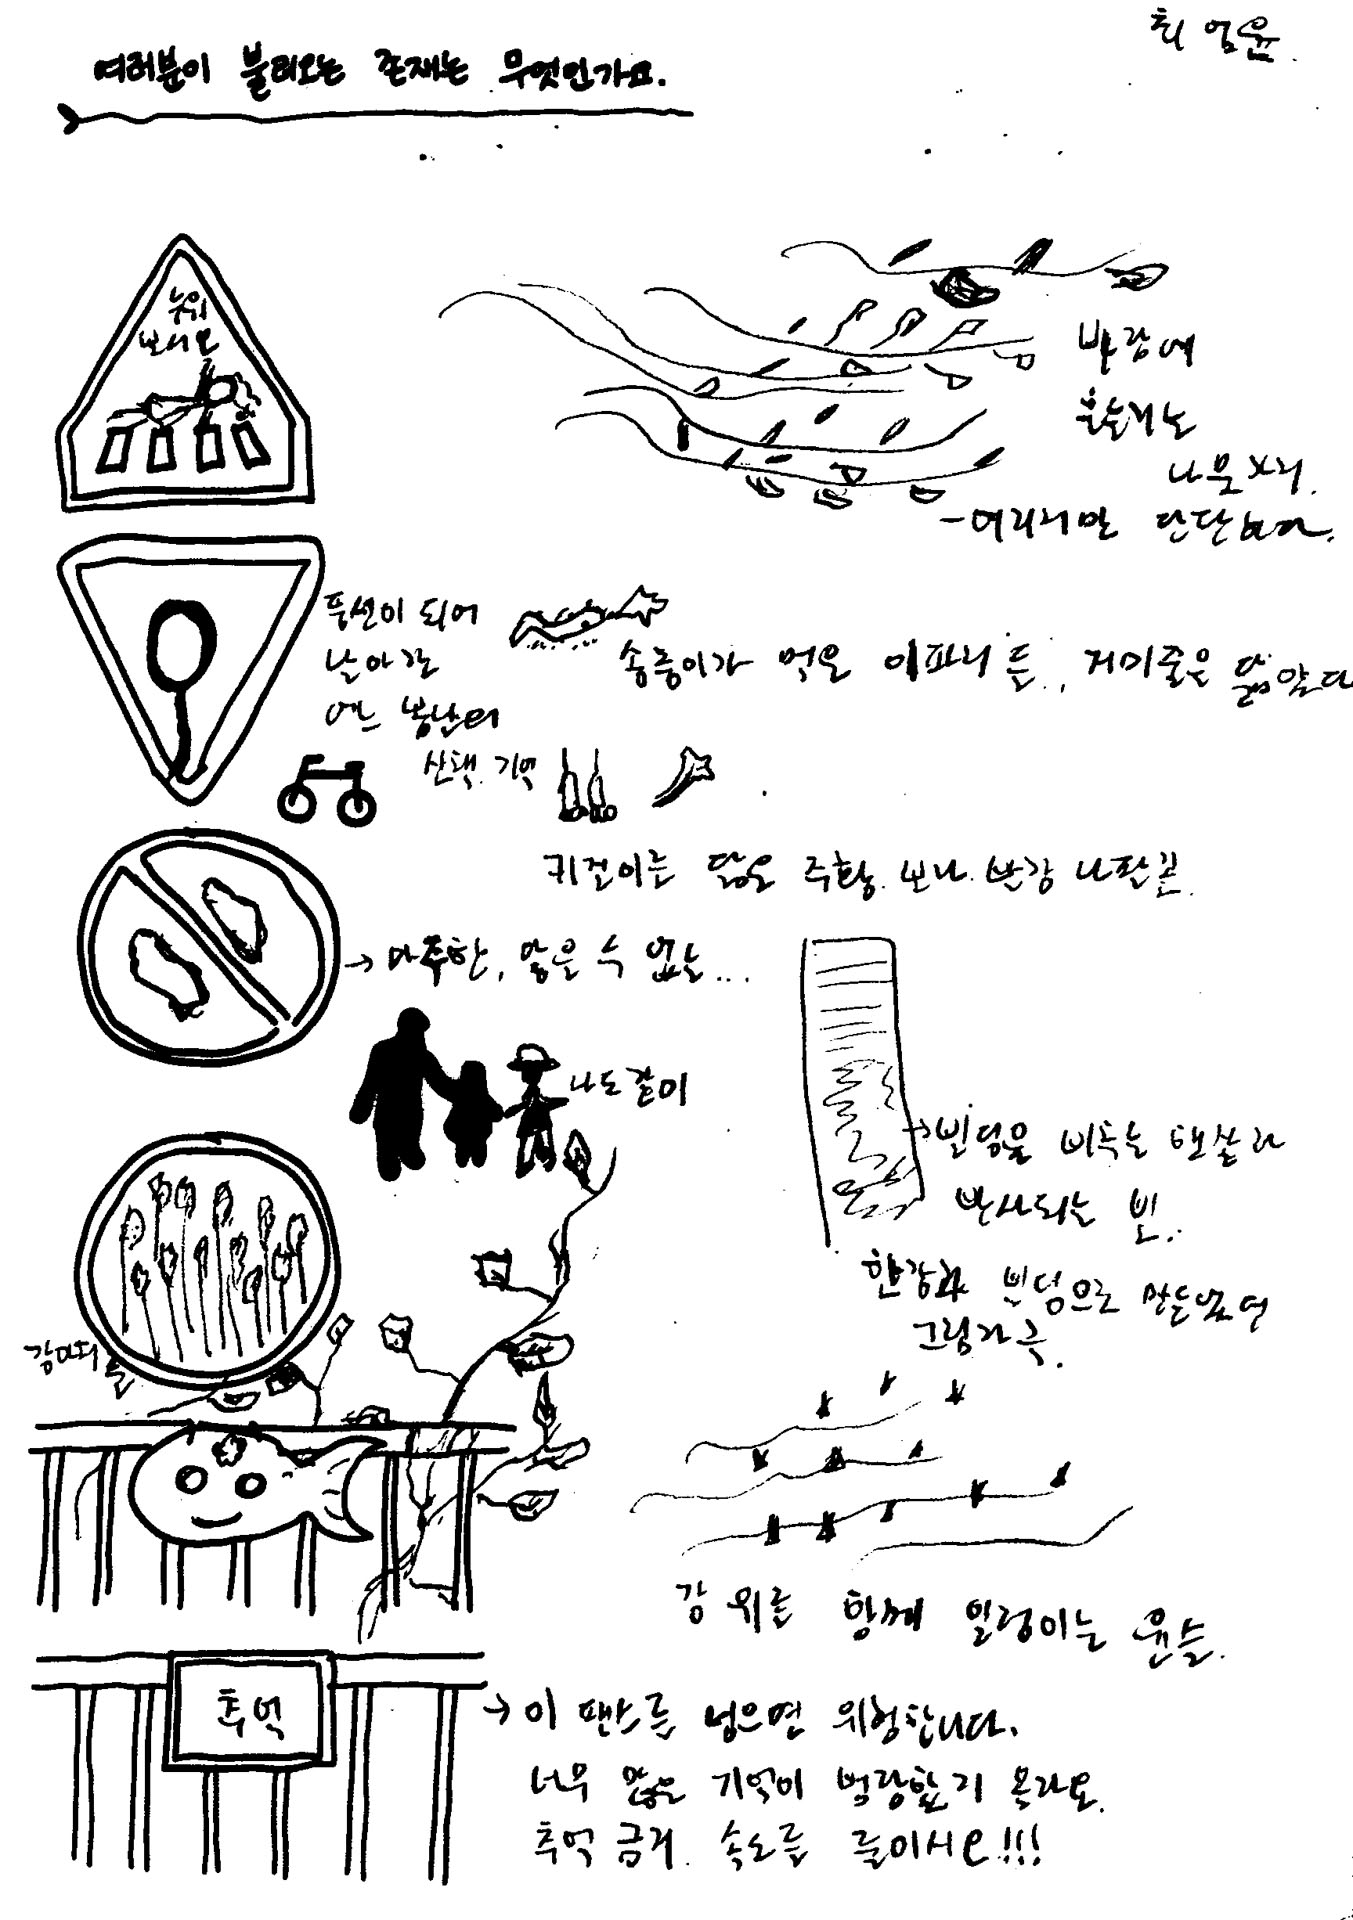 최 엄윤
여러분이 불러오는 존재는 무엇인가요.
누워
보시오
바람에
흔들리는
나뭇가지.
-여리지만 단단하다.
풍선이 되어
날아간
어느 봄날의
산책. 기억
송충이가 먹은 이파리들, 거미줄을 닮았다
키 걷이를 닮은 주황. 보다. 빨강 나팔꽃.
→ 마주한, 앉을 수 없는...
나도 같이
→ 빌딩을 비추는 햇살과
반사되는 빈.
한강과 빌딩으로 만들어
그림자극.
강아지
풀
강 위를 함께 일렁이는 윤슬.
추억
→ 이 팬스를 넘으면 위험합니다.
너무 많은 기억이 범람할지 몰라요.
추억 금지. 속도를 줄이시오!!!